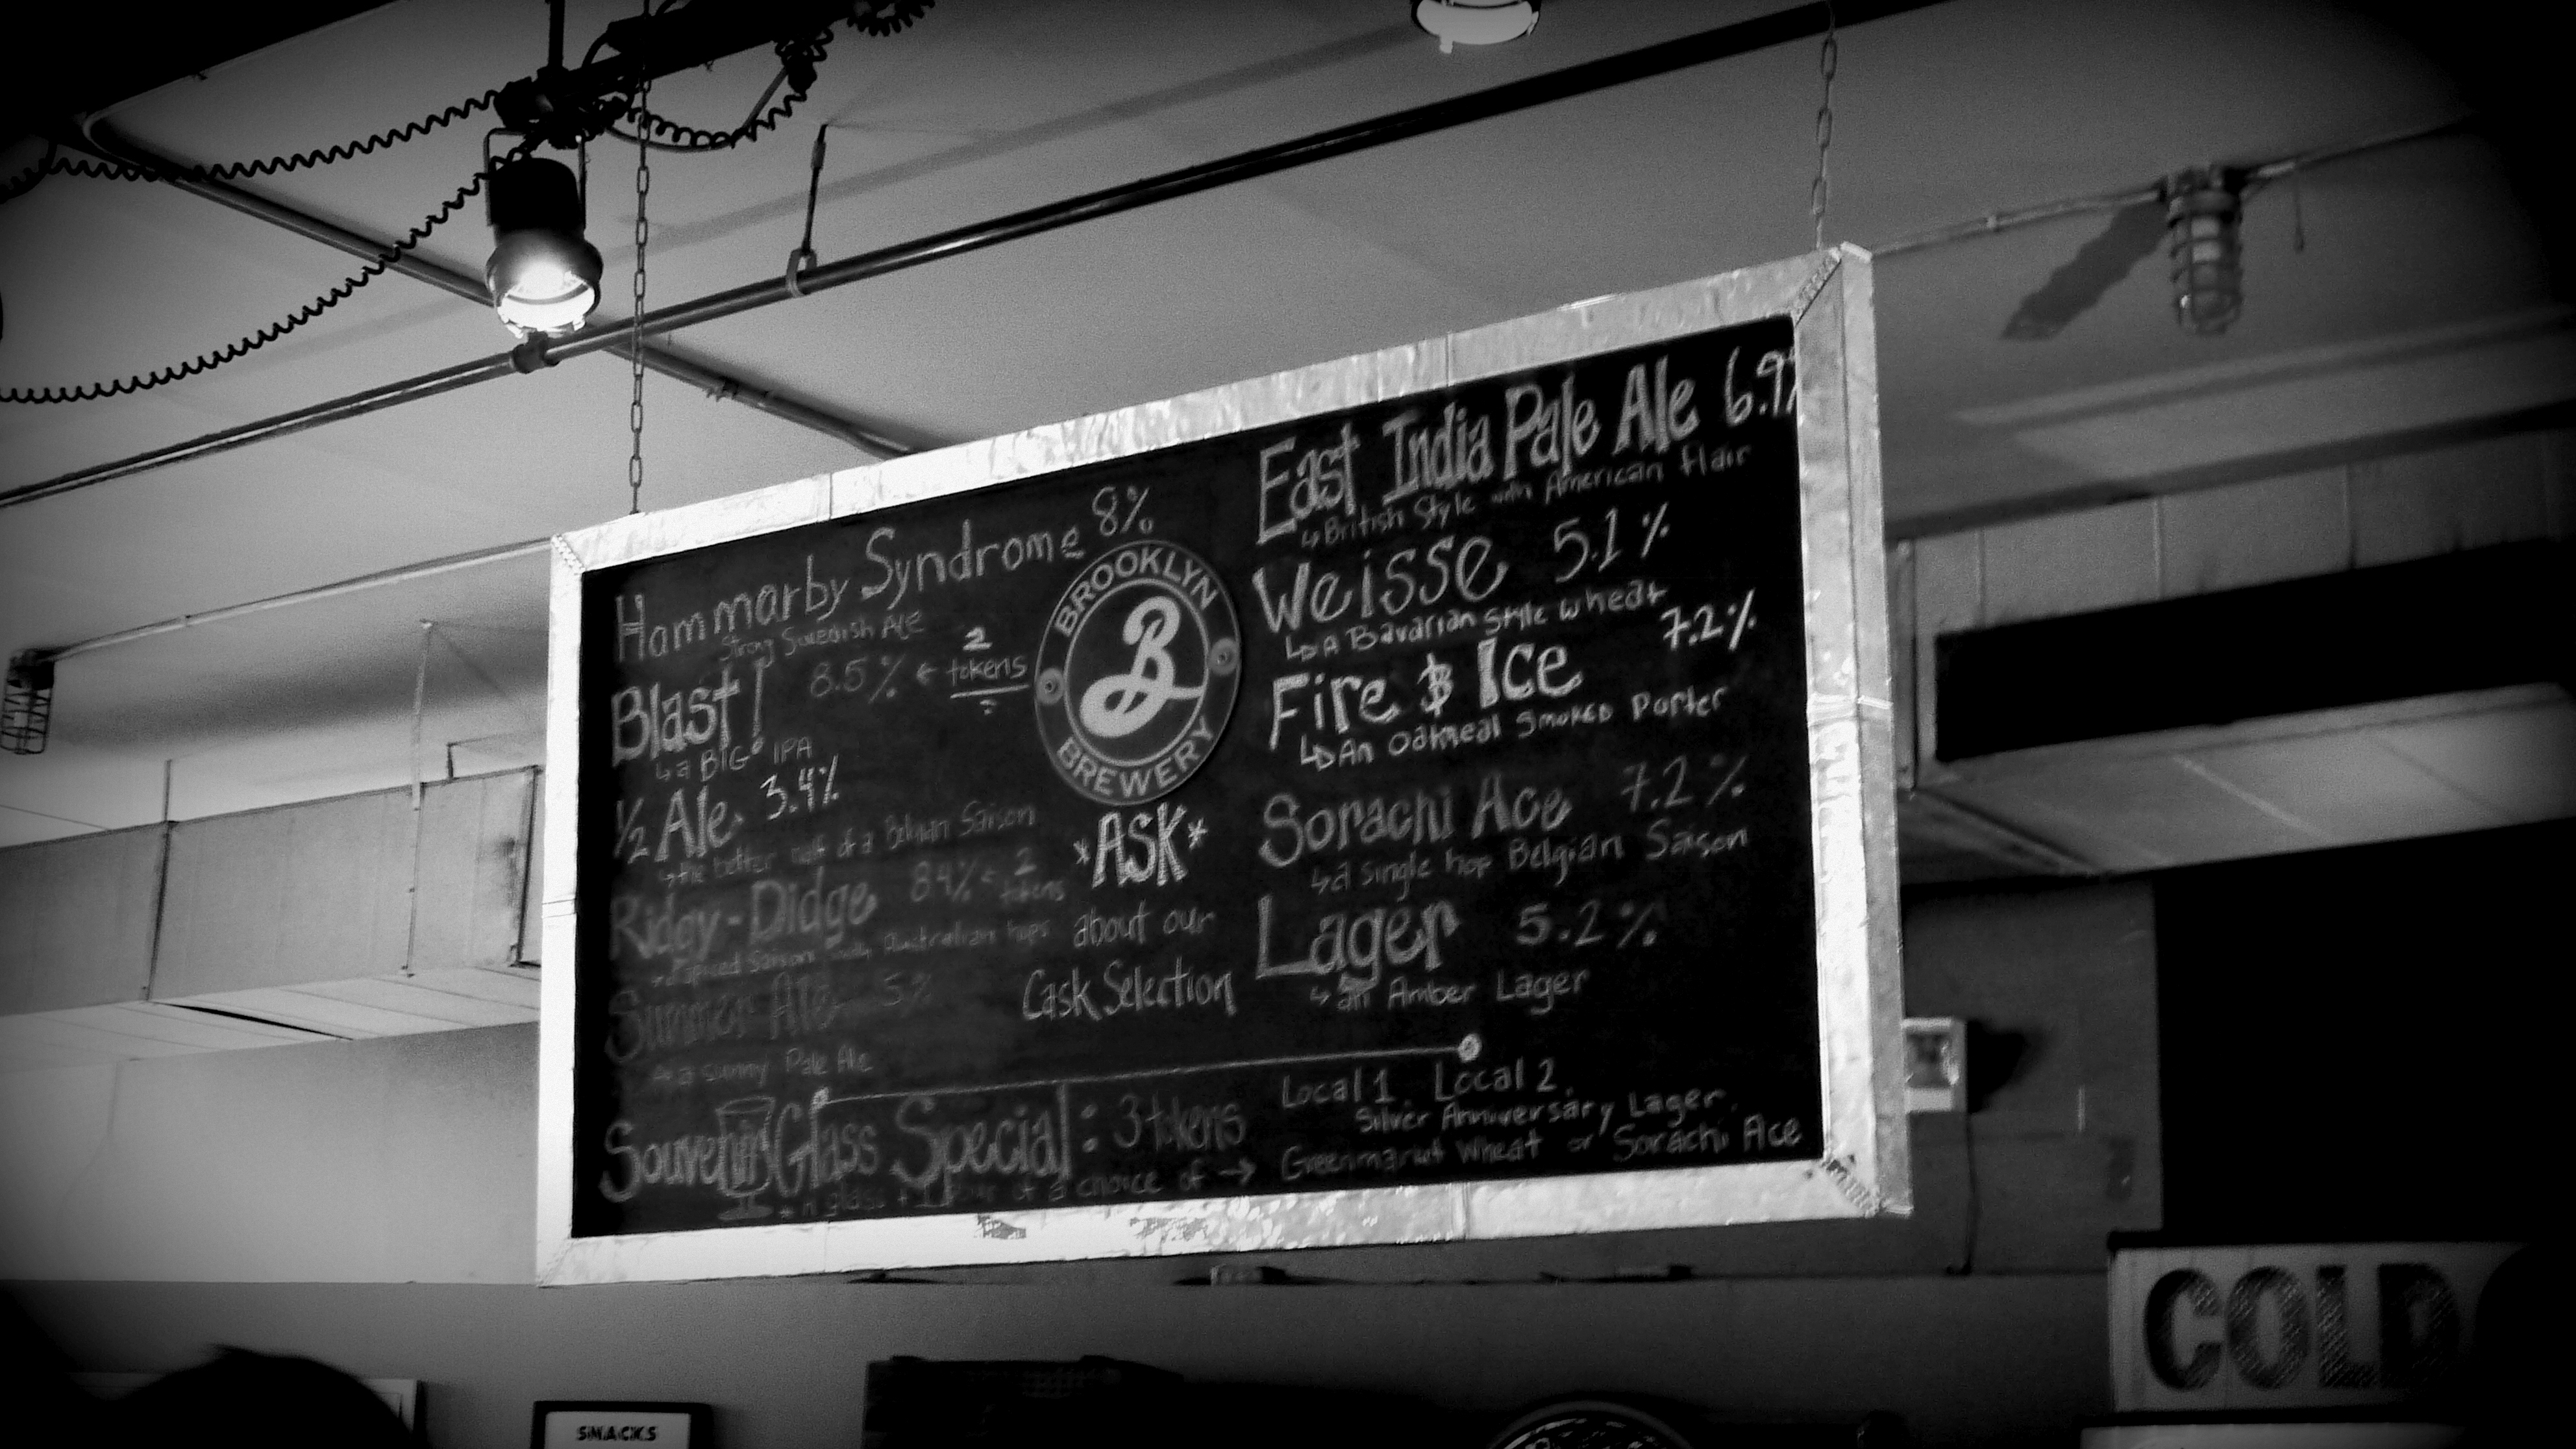 Hammarby Syndrome 8%
Strong Swedish Ale
Blast! 8.5% ← 2 tokens
↳ a BIG IPA
1/2 Ale 3.4%
↳ the better half of a Belgian Saison
Ridgy-Didge 8.4% ← 2 tokens
spiced Saison Australian hops
Summer Ale 5%
↳ a sunny Pale Ale
BROOKLYN
B
BREWERY
*ASK*
about our
Cask Selection
East India Pale Ale 6.9%
↳ British Style with American flair
Weisse 5.1%
↳ A Bavarian Style wheat
Fire & Ice 7.2%
↳ An Oatmeal Smoked Porter
Sorachi Ace 7.2%
↳ a single hop Belgian Saison
Lager 5.2%
↳ an Amber Lager
Souvenir Glass Special: 3 tokens
* A glass + 1 pour of a choice of →
Local 1, Local 2,
Silver Anniversary Lager,
Greenmarket Wheat or Sorachi Ace
COLD
SNACKS